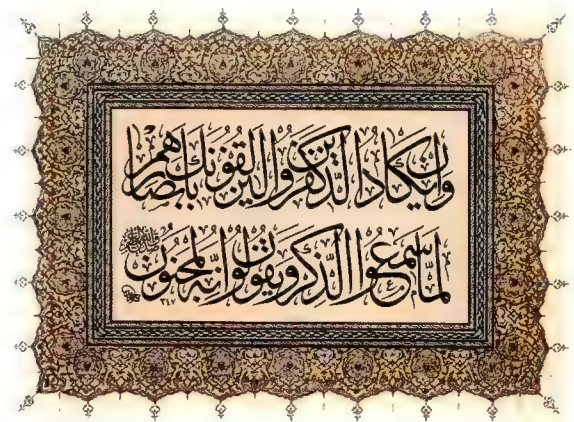 وَاِنْ يَكَادُ الَّذِينَ كَفَرُوا لَيُزْلِقُونَكَ بِاَبْصَارِهِمْ
لَمَّا سَمِعُوا الذِّكْرَ وَيَقُولُونَ اِنَّهُ لَمَجْنُونٌ